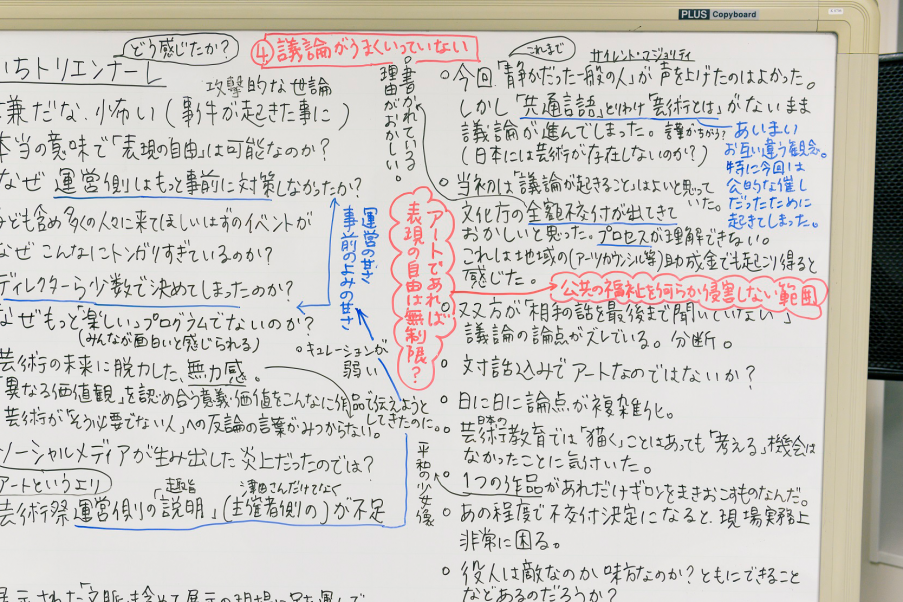 PLUS Copyboard
どう感じたか?
いちトリエンナーレ
攻撃的な世論
嫌だな、怖い(事件が起きた事に)
本当の意味で「表現の自由」は可能なのか?
なぜ運営側はもっと事前に対策しなかったか?
ども含め多くの人々に来てほしいはずのイベントが
なぜこんなにトンガリすぎているのか?
ディレクターら少数で決めてしまったのか?
なぜもっと「楽しい」プログラムでないのか?
(みんなが面白いと感じられる)
芸術の未来に脱力した、無力感。
「異なる価値観」を認め合う意義・価値をこんなに作品で伝えようと
してきたのに。
芸術が「そう必要でない人」への反論の言葉がみつからない。
ソーシャルメディアが生み出した炎上だったのでは?
アートというエリ
趣旨
津田さんだけでなく
芸術祭運営側の「説明」(主催者側の)が不足
展示された文脈も含めて展示の現場に足を運んで
運営の甘さ
事前のよみの甘さ
○キュレーションが
弱い
④議論がうまくいっていない
○書かれている
理由がおかしい。
アートであれば
表現の自由は無制限?
平和の少女像
これまで
サイレント・マジョリティ
○今回「静かだった一般の人」が声を上げたのはよかった。
しかし「共通言語」とりわけ「芸術とは」がないまま
議論が進んでしまった。言葉がちがう?
(日本には芸術が存在しないのか?)
あいまい
お互い違う観念。
特に今回は
公的な催し
だったために
起きてしまった。
○当初は「議論が起きること」はよいと思って
いた。
文化庁の全額不交付が出てきて
おかしいと思った。プロセスが理解できない。
これは地域の(アーツカウンシル等)助成金でも起こり得ると
感じた。
公共の福祉を何らか侵害しない範囲
○双方が「相手の話を最後まで聞いていない」
議論の論点がズレている。分断。
○対話込みでアートなのではないか?
○日に日に論点が複雑化。
日本の
○芸術教育では「描く」ことはあっても「考える」機会は
なかったことに気付いた。
○1つの作品があれだけギロンをまきおこすものなんだ。
○あの程度で不交付決定になると、現場実務上
非常に困る。
○役人は敵なのか味方なのか?ともにできること
などあるのだろうか?